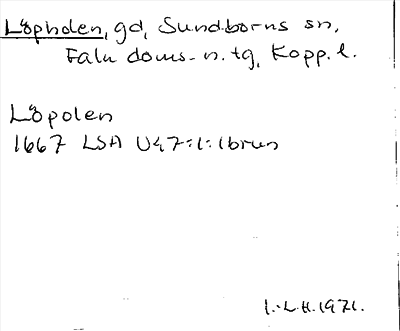 Löpholen, gd, Sundborns sn,
Falu doms. n. tg, Kopp. l.
Löpolen
1667 LSA U47:1:1brun
I.-L.H. 1971.